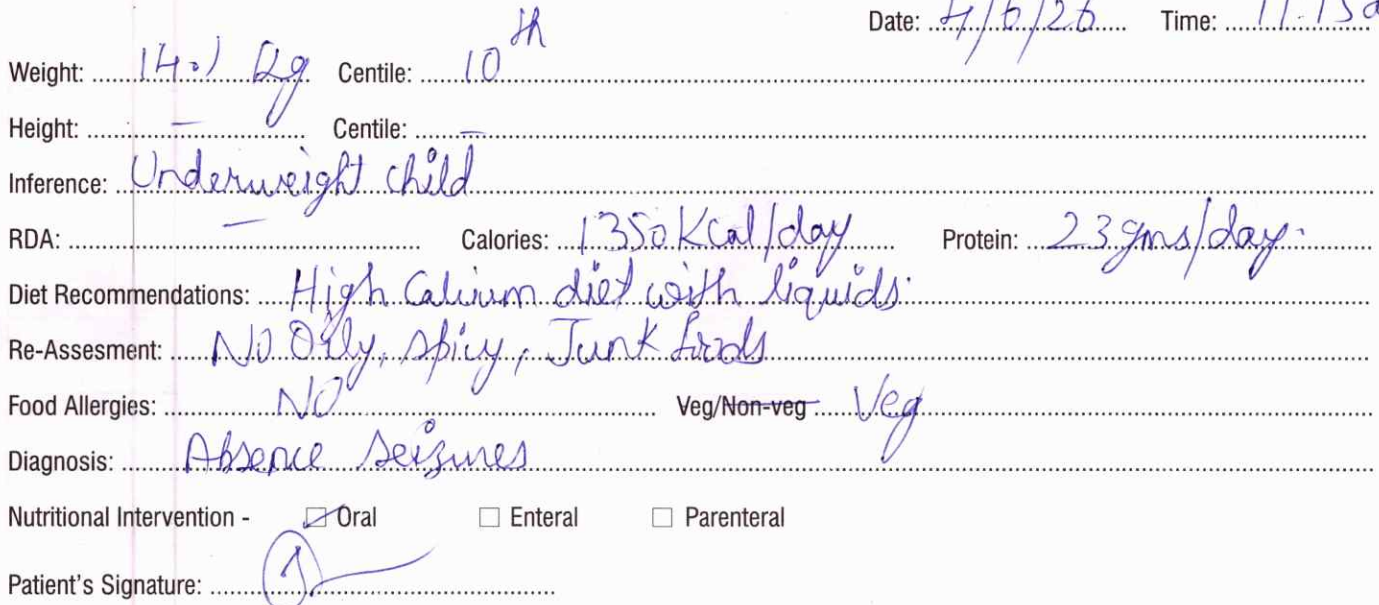 Date: 4/6/26 Time: 11.15a
Weight: 14.1 Kg Centile: 10th
Height: – Centile: –
Inference: Underweight child
RDA: – Calories: 1350 Kcal/day Protein: 23 gms/day.
Diet Recommendations: High Calcium diet with liquids.
Re-Assesment: No Oily, spicy, Junk foods
Food Allergies: NO Veg/Non-veg Veg
Diagnosis: Absence Seizures
Nutritional Intervention - ☑ Oral ☐ Enteral ☐ Parenteral
Patient's Signature: